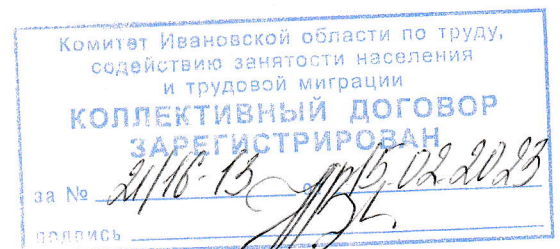 Комитет Ивановской области по труду,
содействию занятости населения
и трудовой миграции
КОЛЛЕКТИВНЫЙ ДОГОВОР
ЗАРЕГИСТРИРОВАН
за № 21/16-13 15.02.2023
подпись